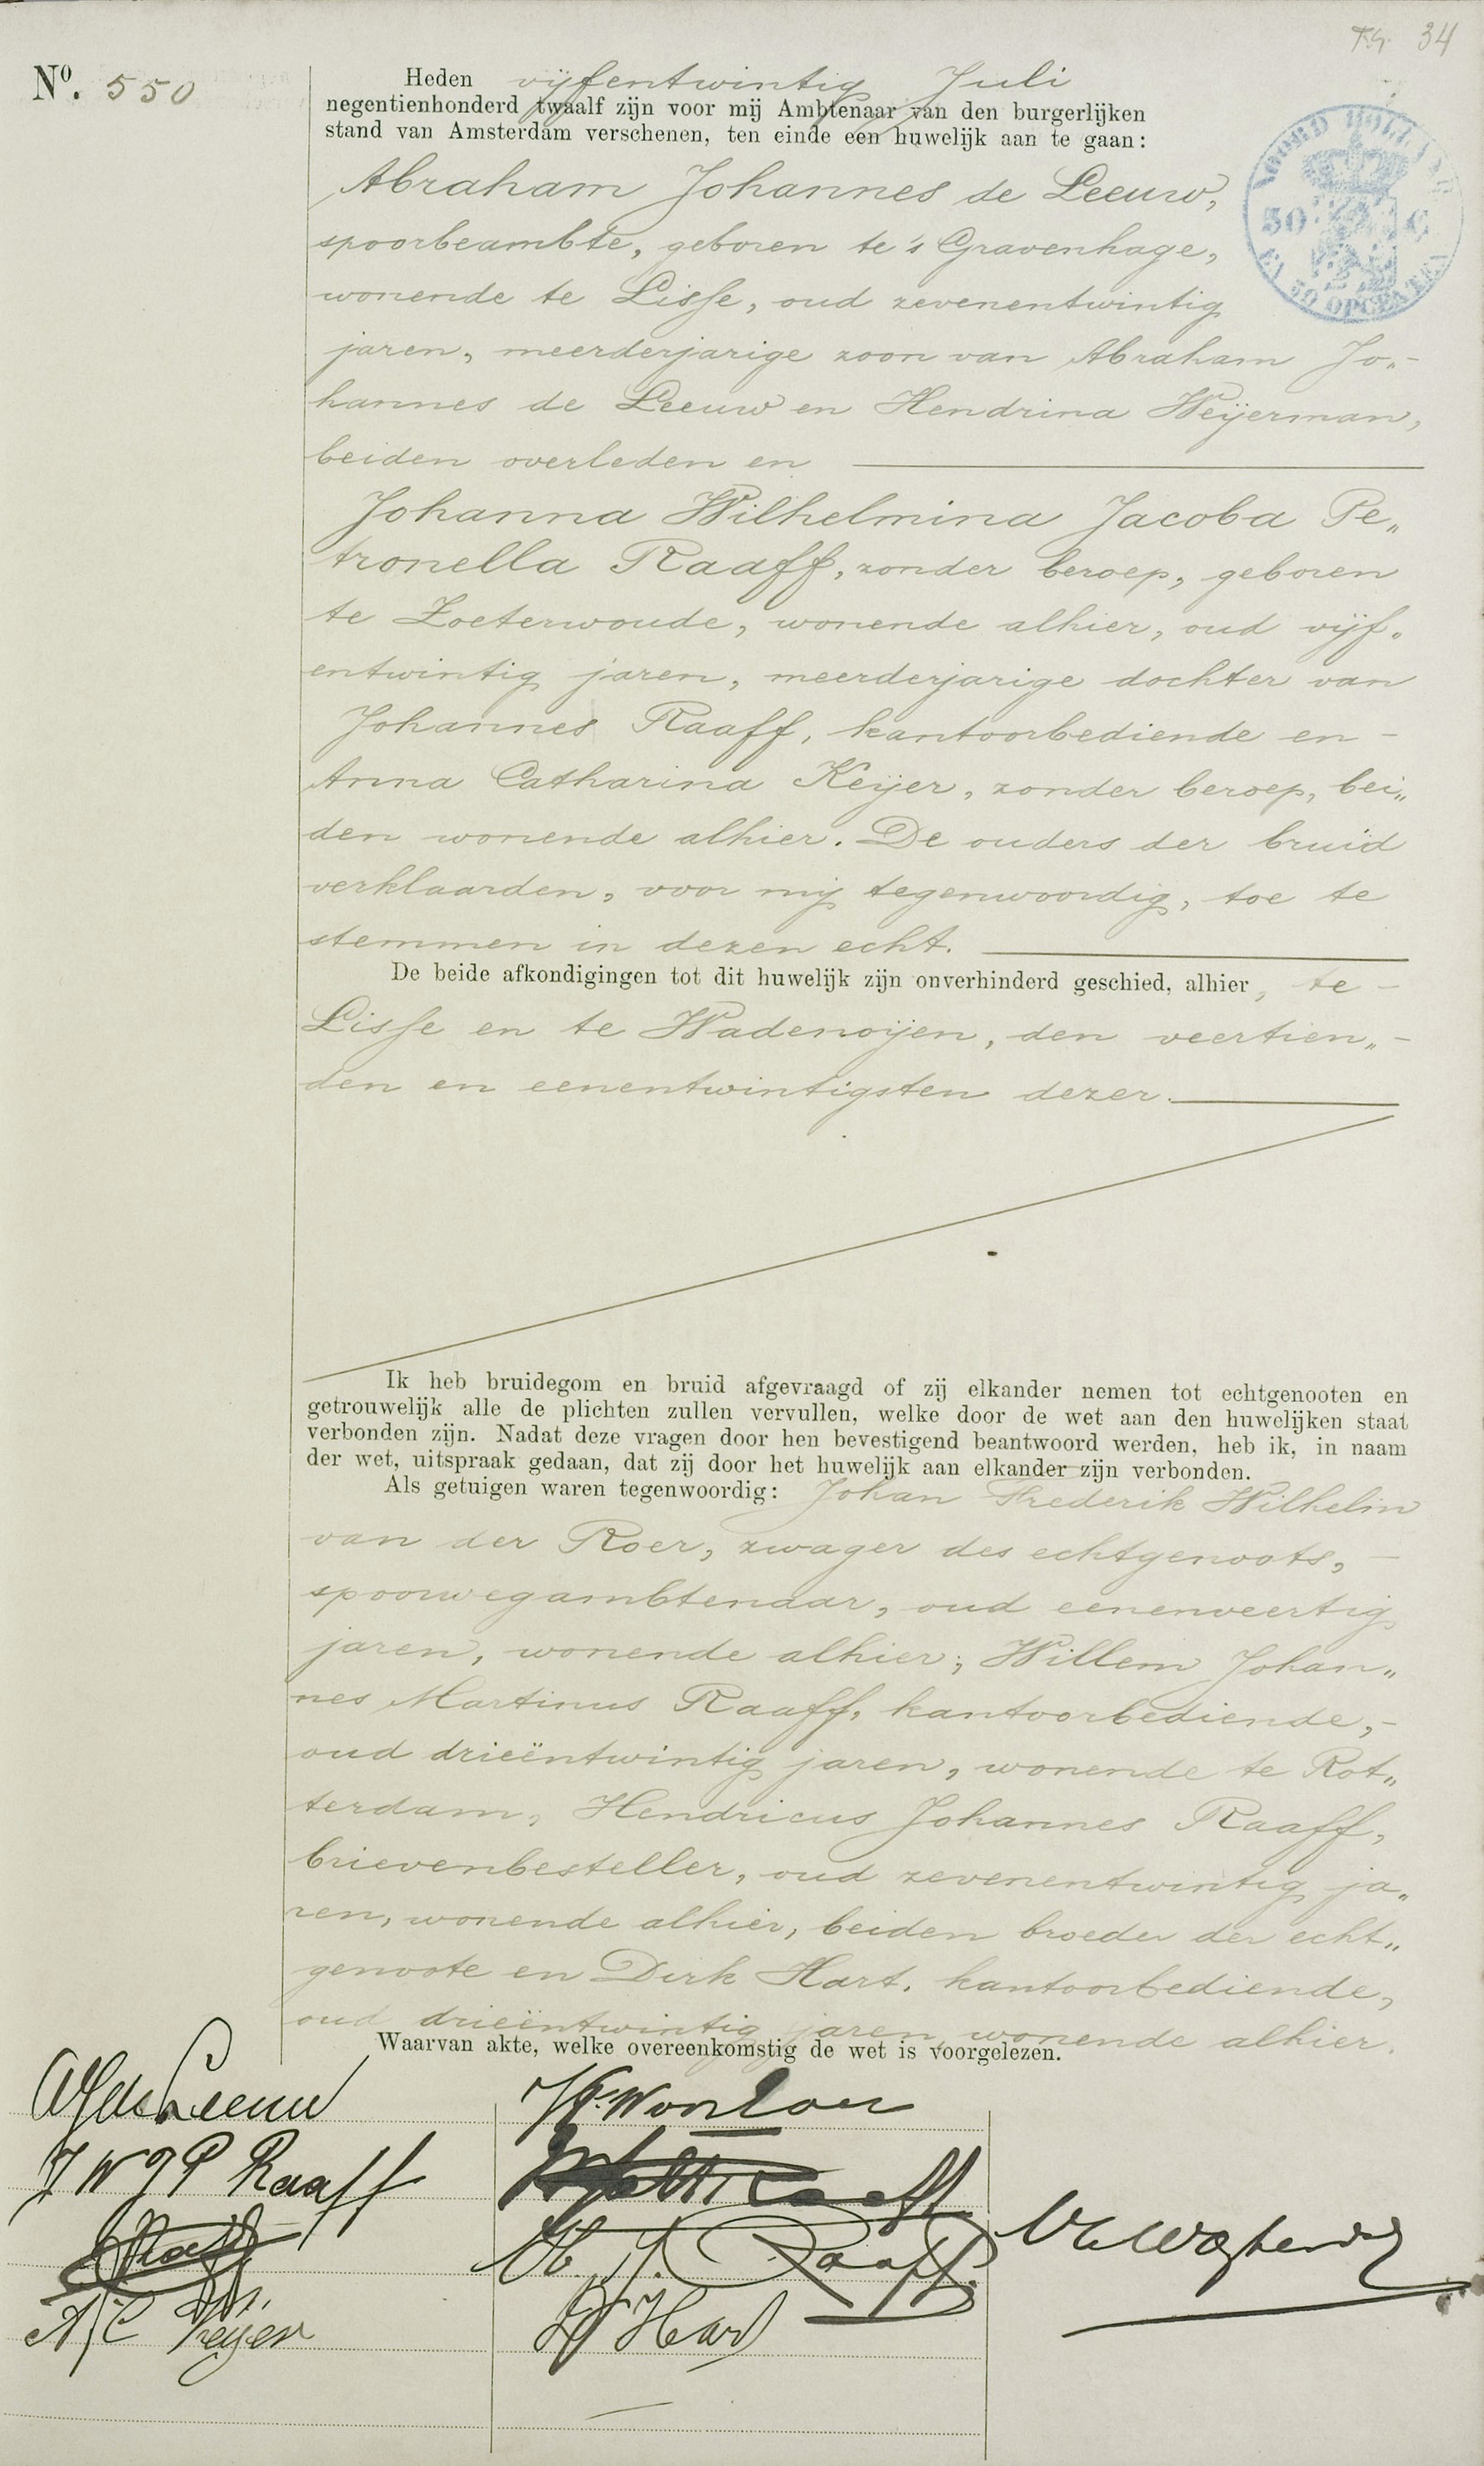 34
Nº. 550
Heden vijfentwintig Juli
negentienhonderd twaalf zijn voor mij Ambtenaar van den burgerlijken
stand van Amsterdam verschenen, ten einde een huwelijk aan te gaan:
Abraham Johannes de Leeuw,
spoorbeambte, geboren te 's Gravenhage,
wonende te Lisse, oud zevenentwintig
jaren, meerderjarige zoon van Abraham Jo„-
hannes de Leeuw en Hendrina Weijerman,
beiden overleden en
Johanna Wilhelmina Jacoba Pe„
tronella Raaff, zonder beroep, geboren
te Zoeterwoude, wonende alhier, oud vijf„
entwintig jaren, meerderjarige dochter van
Johannes Raaff, kantoorbediende en -
Anna Catharina Keijer, zonder beroep, bei„
den wonende alhier. De ouders der bruid
verklaarden, voor mij tegenwoordig, toe te
stemmen in dezen echt.
De beide afkondigingen tot dit huwelijk zijn onverhinderd geschied, alhier, te -
Lisse en te Wadenoijen, den veertien„-
den en eenentwintigsten dezer.
Ik heb bruidegom en bruid afgevraagd of zij elkander nemen tot echtgenooten en
getrouwelijk alle de plichten zullen vervullen, welke door de wet aan den huwelijken staat
verbonden zijn. Nadat deze vragen door hen bevestigend beantwoord werden, heb ik, in naam
der wet, uitspraak gedaan, dat zij door het huwelijk aan elkander zijn verbonden.
Als getuigen waren tegenwoordig: Johan Frederik Wilhelm
van der Roer, zwager des echtgenoots, -
spoorwegambtenaar, oud eenenveertig
jaren, wonende alhier; Willem Johan„
nes Martinus Raaff, kantoorbediende, -
oud drieëntwintig jaren, wonende te Rot„
terdam, Hendricus Johannes Raaff,
brievenbesteller, oud zevenentwintig ja„
ren, wonende alhier, beiden broeder der echt„
genoote en Dirk Hart, kantoorbediende,
oud drieëntwintig jaren, wonende alhier.
Waarvan akte, welke overeenkomstig de wet is voorgelezen.
NOORD HOLLAND
50 C
EN 50 OPCENTEN
AJ de Leeuw
J W J P Raaff
A C Keijer
Raaff
H. J. Raaff.
D Hart